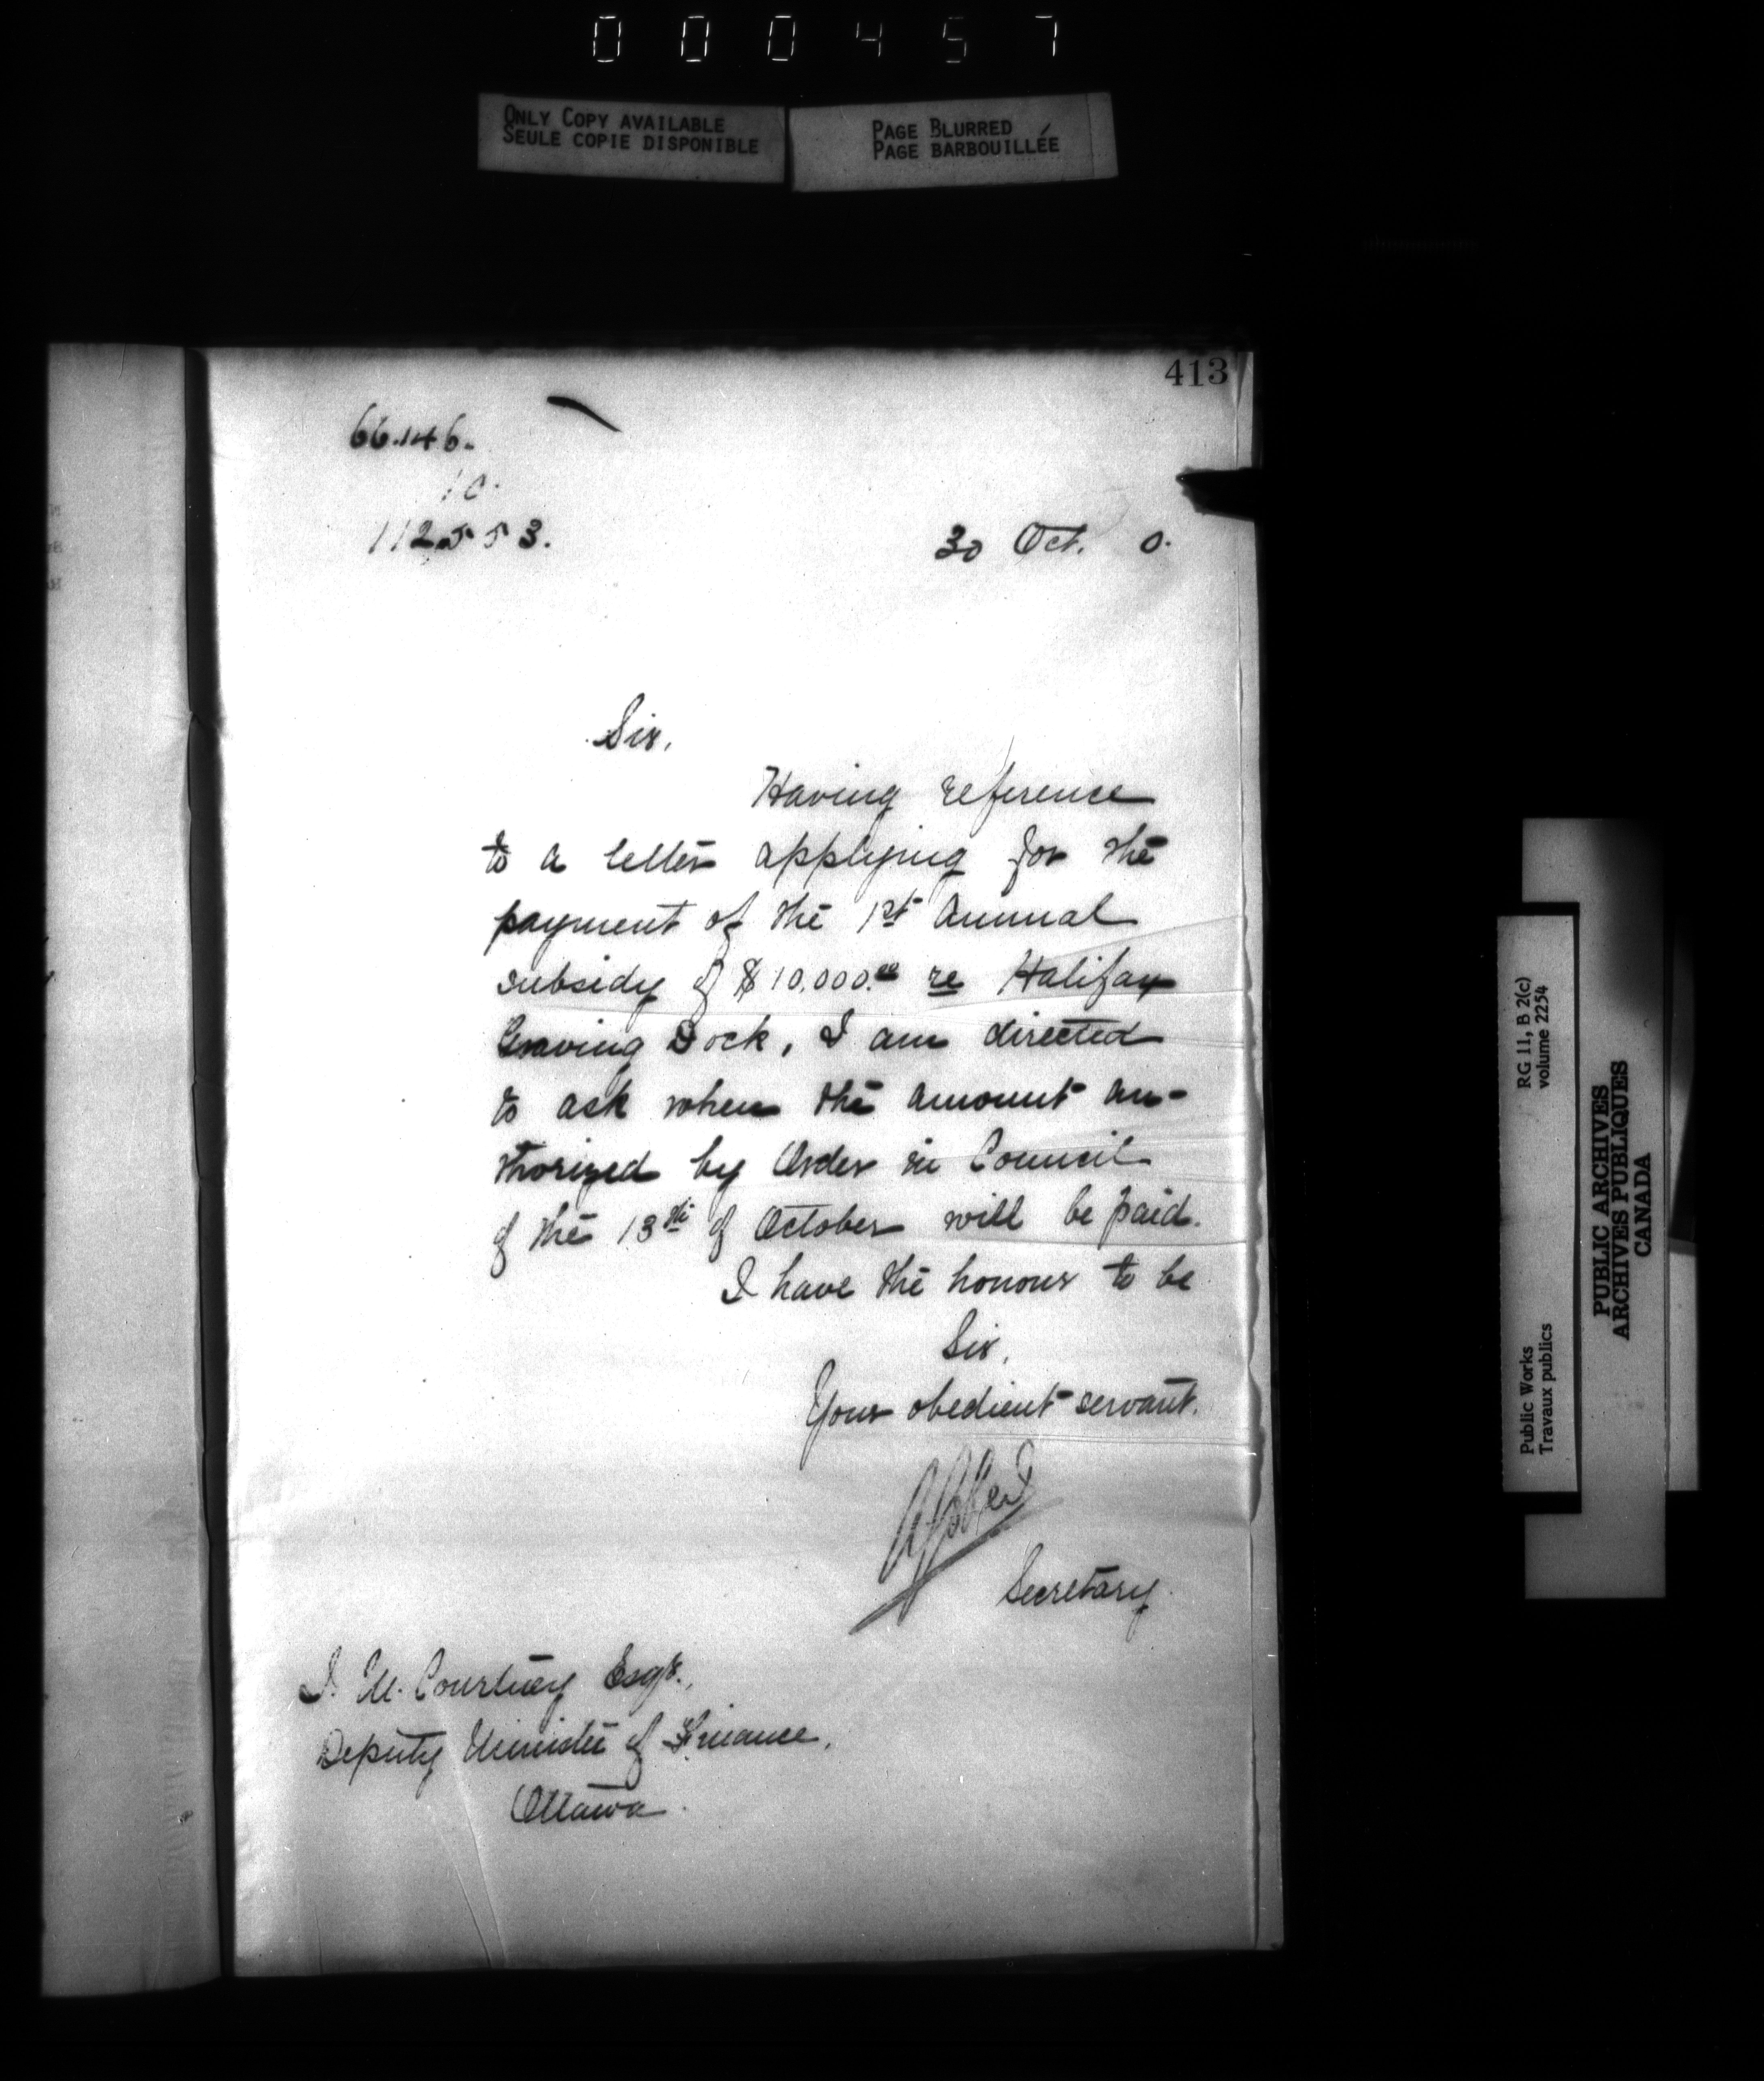 000457
ONLY COPY AVAILABLE
SEULE COPIE DISPONIBLE
PAGE BLURRED
PAGE BARBOUILLÉE
413
66.146.
10.
112553.
30 Oct. 0.
Sir,
Having reference
to a letter applying for the
payment of the 1st Annual
subsidy of $10,000.00 re Halifax
Graving Dock, I am directed
to ask when the amount au-
thorized by Order in Council
of the 13th of October will be paid.
I have the honour to be
Sir,
Your obedient servant.
Secretary.
J. M. Courtney Esqr.,
Deputy Minister of Finance,
Ottawa.
RG 11, B 2(c)
volume 2254
Public Works
Travaux publics
PUBLIC ARCHIVES
ARCHIVES PUBLIQUES
CANADA